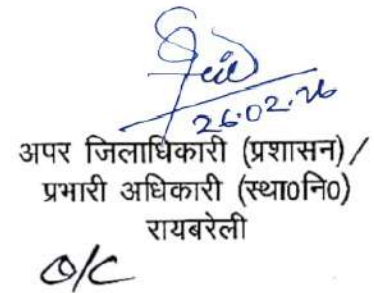 26.02.26
अपर जिलाधिकारी (प्रशासन) /
प्रभारी अधिकारी (स्था0नि0)
रायबरेली
O/C